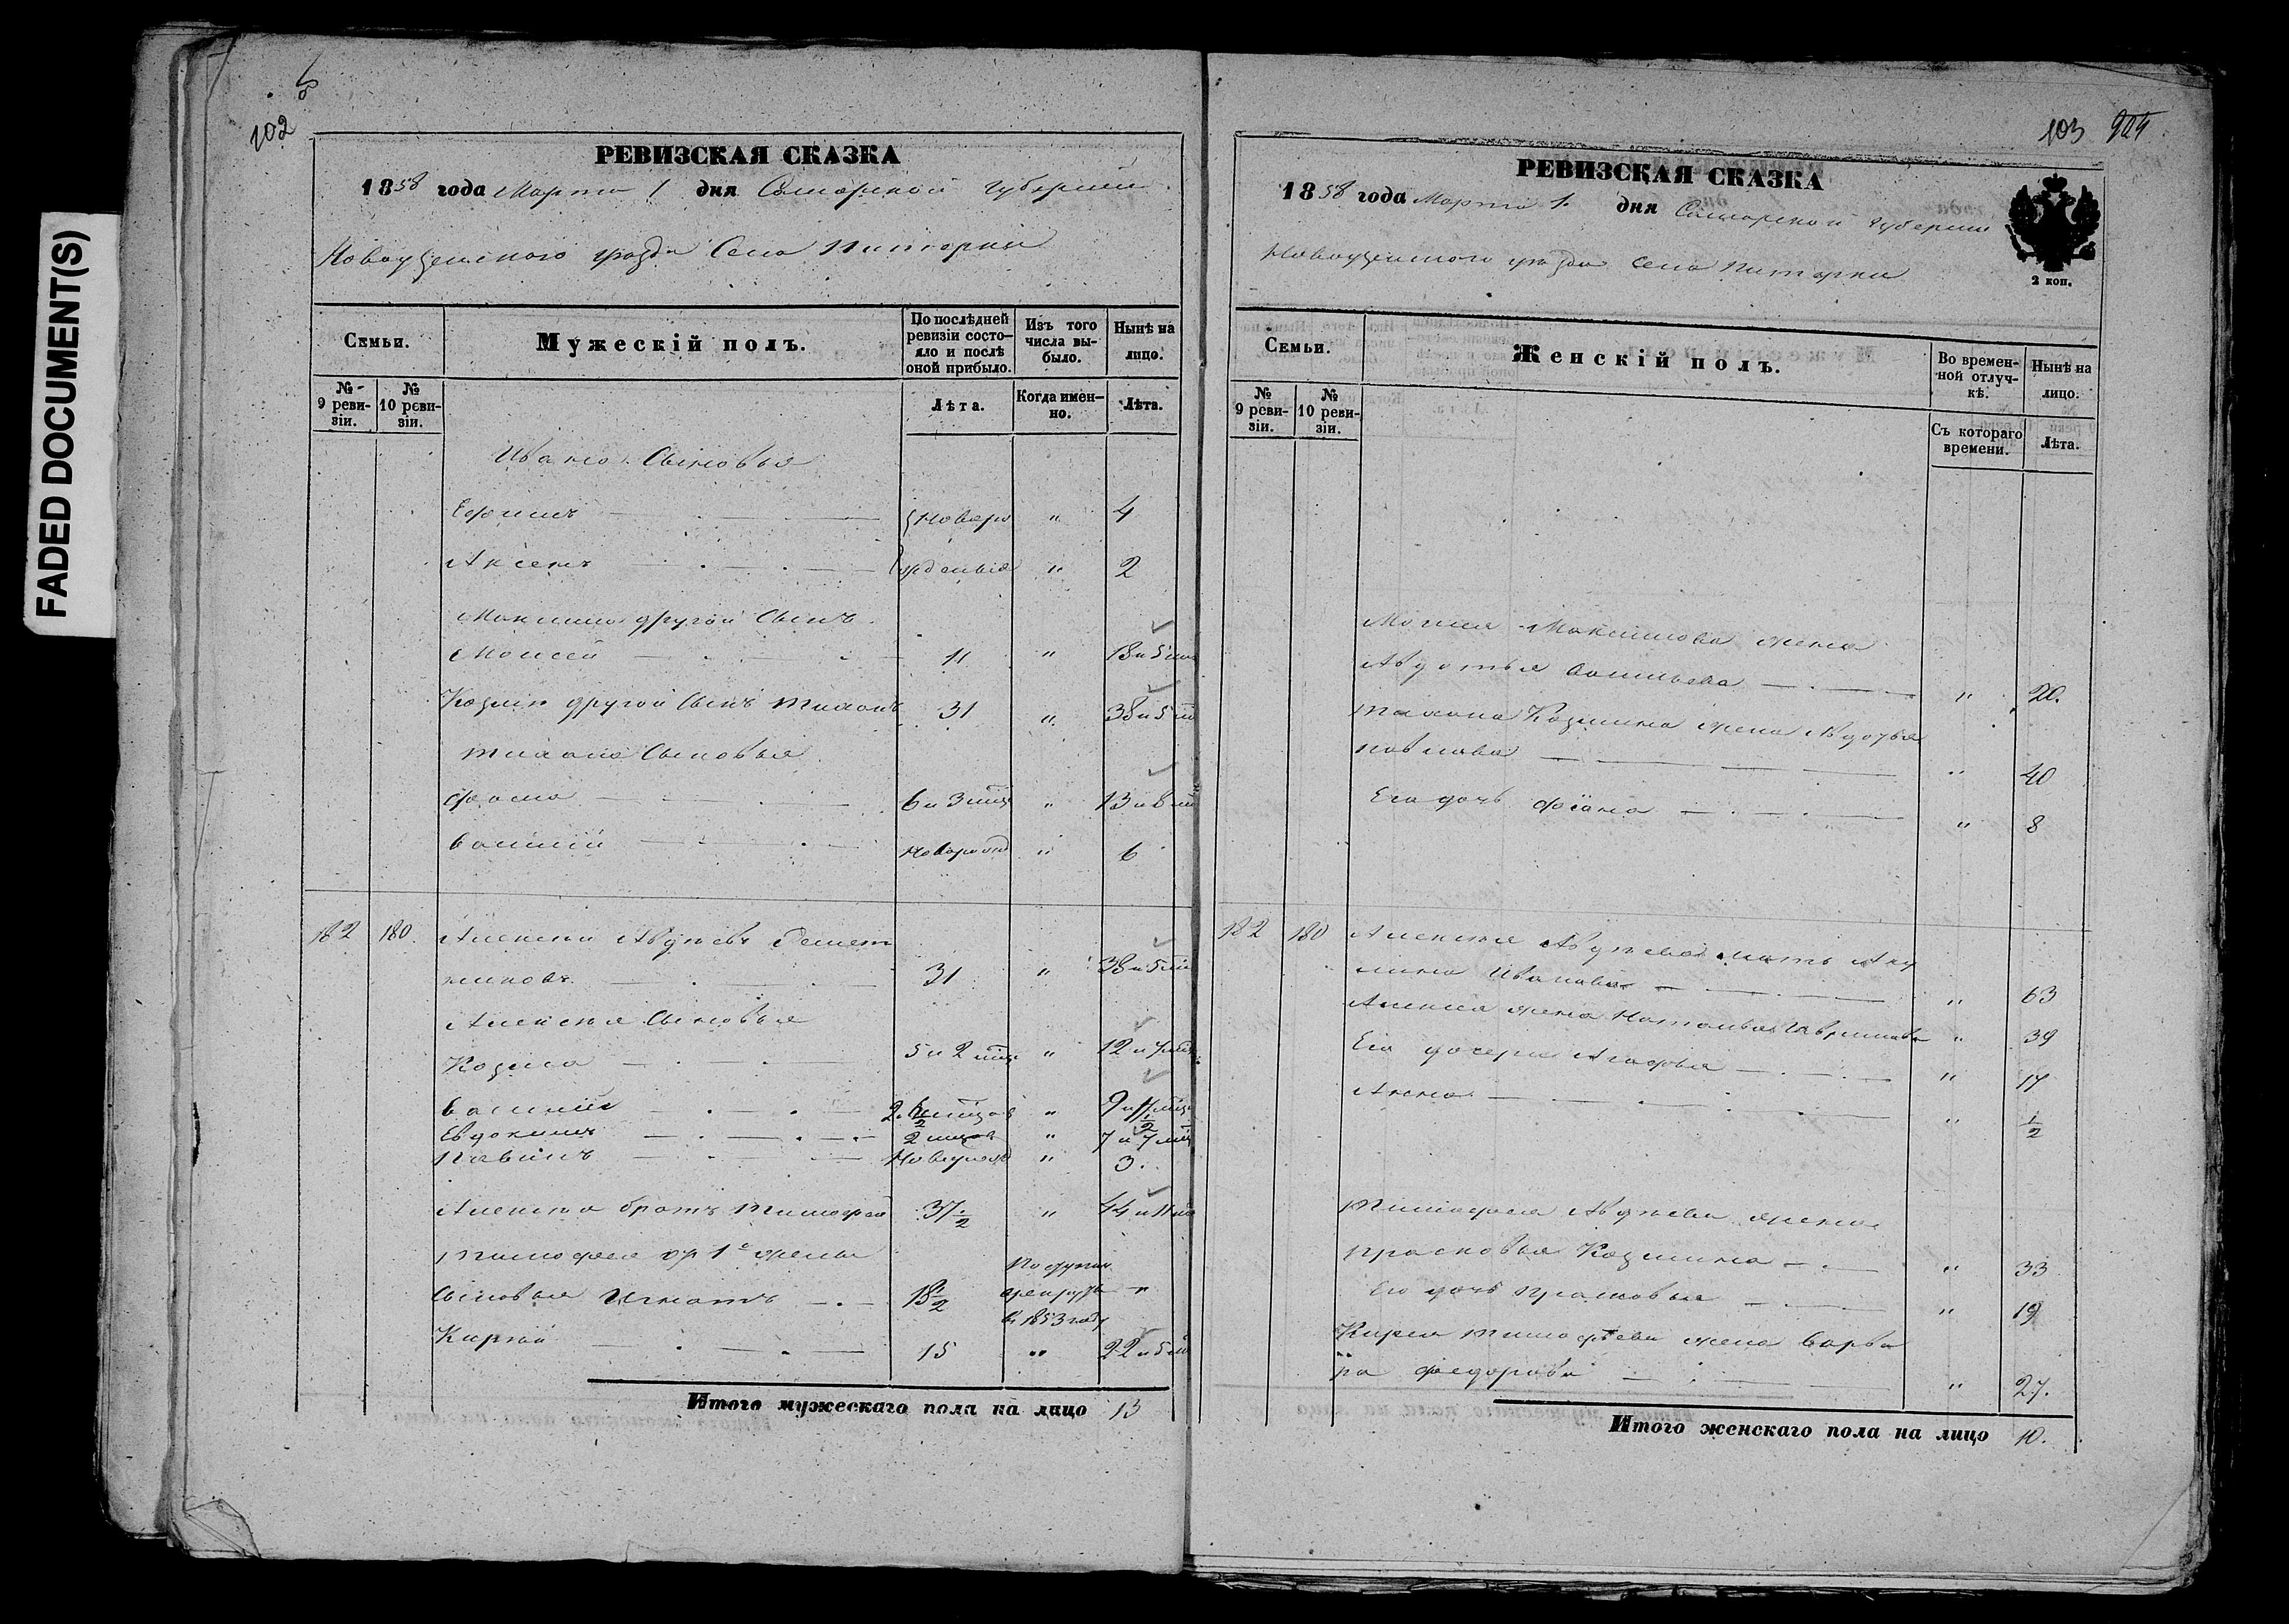 FADED DOCUMENT(S)
102
РЕВИЗСКАЯ СКАЗКА
1858 года Марта 1 дня Самарской губернии
Новоузенского уезда Села Питерки
Семьи.
Мужескій полъ.
По послѣдней ревизіи состояло и послѣ оной прибыло.
Изъ того числа выбыло.
Нынѣ на лицо.
№ 9 ревизіи.
№ 10 ревизіи.
Лѣта.
Когда именно.
Лѣта.
Ивана Сыновья
Ефимъ новоро " 4
Аксенъ жденыя " 2
Максима другой Сынъ
Моисей 11 " 18 и 5 ме
Козьмы другой Сынъ Тихонъ 31 " 38 и 5 ме
Тихона Сыновья
Фома 6 и 3 мец " 13 и 8 ме
Василий Новорожд " 6
182 180. Алексей Авдеевъ Решет
никовъ 31 " 38 и 5 ме
Алексея Сыновья
Козма 5 и 2 мец " 12 и 7 мец
Василий 2 " 9 и
Евдокимъ 2 месяц " 7 и 7 мец
Павелъ Новорожд " 3.
Алексея братъ Тимофей 37 1/2 " 44 и 11 ме
Тимофея от 1й жены
Сыновья Игнатъ 18 1/2 "
в 1853 году
Кирей 15 " 22 и 5 ме
Итого мужескаго пола на лицо 13
103
РЕВИЗСКАЯ СКАЗКА
1858 года Марта 1. дня Самарской губернии
Новоузенского уезда Села Питерки
2 коп.
Семьи.
Женскій полъ.
Во временной отлучкѣ.
Нынѣ на лицо.
№ 9 ревизіи.
№ 10 ревизіи.
Съ котораго времени.
Лѣта.
Моисея Максимова жена
Авдотья Васильева " 20.
Тихона Козьмина жена Авдотья
Павлова " 40
Его дочь " 8
182 180 Алексея Авдеева мать Аку
лина Иванова " 63
Алексея жена Наталья Гаврилова " 39
Его дочери Агафья " 17
Анна " 1/2
Тимофея Авдеева жена
Прасковья Козьмина " 33
Его дочь Прасковья " 19
Кирея Тимофеева женаВарва
ра Федорова " 27.
Итого женскаго пола на лицо 10.